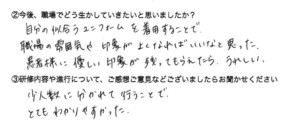 ②今後、職場でどう生かしていきたいと思いましたか?
自分の似合うユニフォームを着用することで、
職場の雰囲気や印象がよくなればいいなと思った。
患者様に優しい印象が残ってもらえたら、うれしい。
③研修内容や進行について、ご感想ご意見などございましたらお聞かせください
少人数に分かれて行うことで、
とてもわかりやすかった。